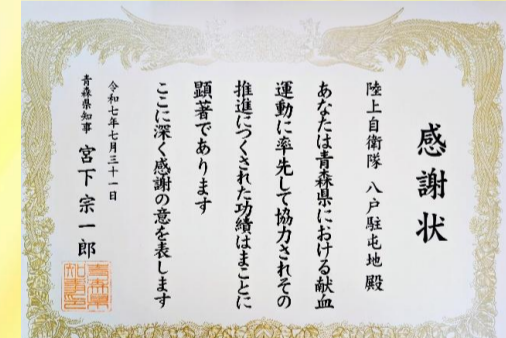 感謝状
陸上自衛隊 八戸駐屯地 殿
あなたは青森県における献血
運動に率先して協力されその
推進につくされた功績はまことに
顕著であります
ここに深く感謝の意を表します
令和七年七月三十一日
青森県知事 宮下 宗一郎
青森県知事印